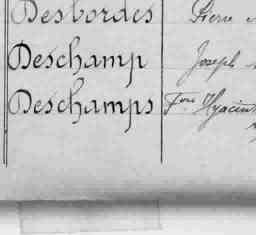 Desbordes Pierre
Deschamp Joseph
Deschamps Fois Hyacin